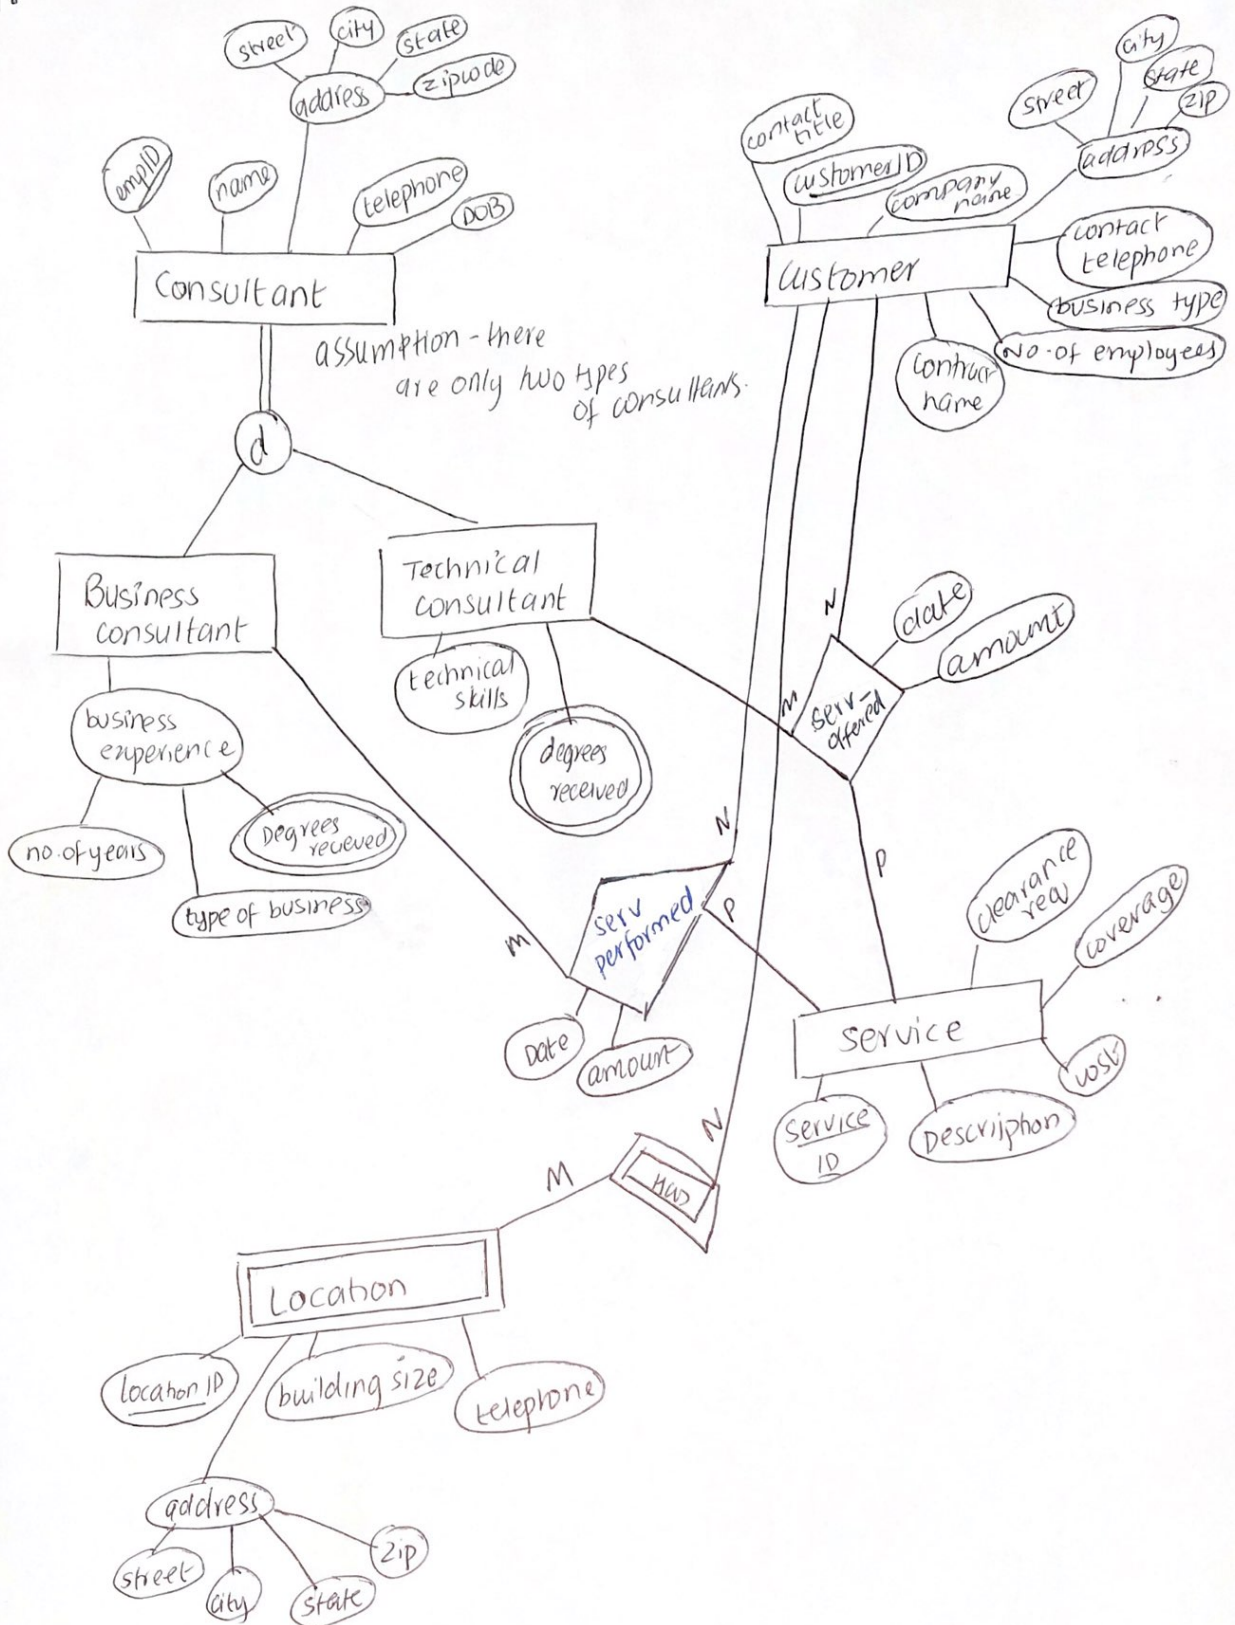 street
city
state
zipcode
address
empID
name
telephone
DOB
Consultant
assumption - there
are only two types
of consultants.
d
Business
consultant
Technical
consultant
technical
skills
degrees
received
business
experience
no. of years
Degrees
recieved
type of business
contact
title
customerID
company
name
street
city
state
zip
address
customer
contact
telephone
business type
No. of employees
contract
name
N
M
serv-
offered
date
amount
P
N
M
serv
performed
P
Date
amount
clearance
req
coverage
service
cost
service
ID
N
M
Location
location ID
building size
telephone
address
street
city
state
zip